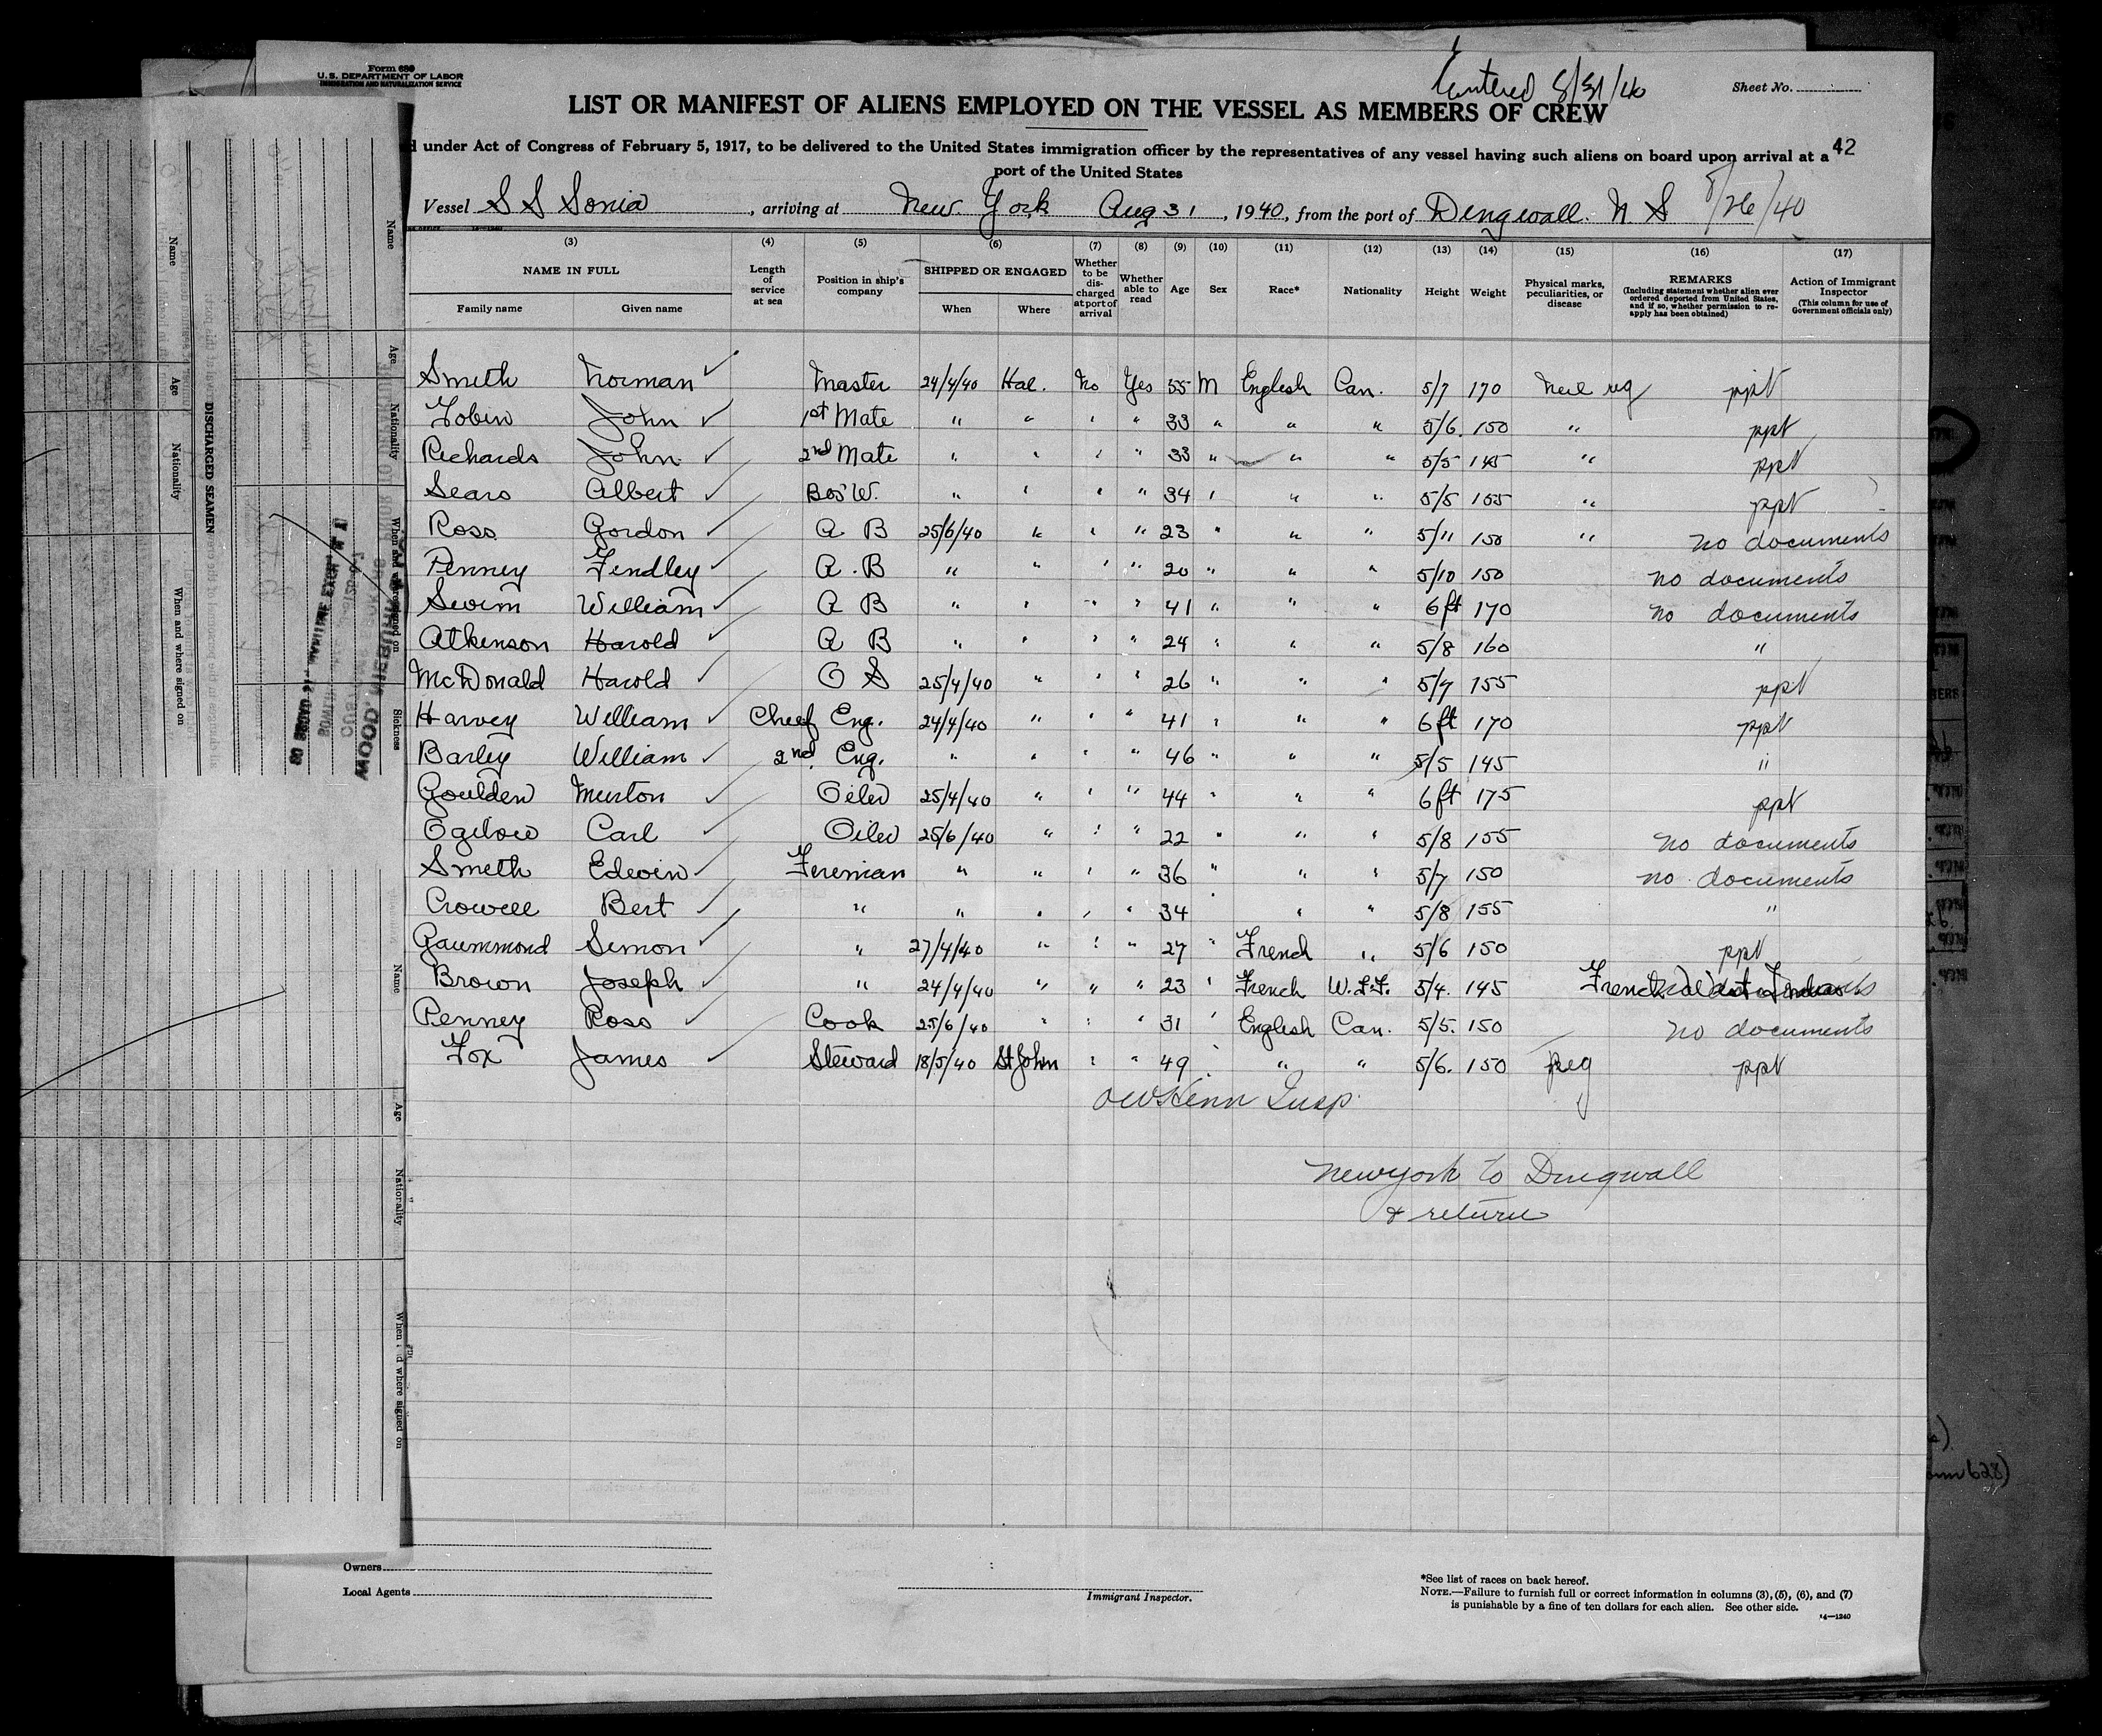 Form 680
U.S. DEPARTMENT OF LABOR
IMMIGRATION AND NATURALIZATION SERVICE
Entered 8/31/40
Sheet No.
LIST OR MANIFEST OF ALIENS EMPLOYED ON THE VESSEL AS MEMBERS OF CREW
under Act of Congress of February 5, 1917, to be delivered to the United States immigration officer by the representatives of any vessel having such aliens on board upon arrival at a
42
port of the United States
Vessel S S Sonia, arriving at New York Aug 31, 1940, from the port of Dingwall. N S 8/26/40
(3) (4) (5) (6) (7) (8) (9) (10) (11) (12) (13) (14) (15) (16) (17)
NAME IN FULL
Family name Given name
Length of service at sea
Position in ship's company
SHIPPED OR ENGAGED
When Where
Whether to be discharged at port of arrival
Whether able to read
Age
Sex
Race*
Nationality
Height
Weight
Physical marks, peculiarities, or disease
REMARKS
(Including statement whether alien ever ordered deported from United States, and if so, whether permission to re-apply has been obtained)
Action of Immigrant Inspector
(This column for use of Government officials only)
Smith Norman ✓ Master 24/4/40 Hal. No Yes 55 M English Can. 5/7 170 ppt
Tobin John ✓ 1st Mate " " " " 33 " " " 5/6. 150 " ppt
Richards John ✓ 2nd Mate " " " " 33 " " " 5/5 145 " ppt
Sears Albert ✓ Bos'W. " " " " 34 " " " 5/5 155 " ppt
Ross Gordon ✓ A B 25/6/40 " " " 23 " " " 5/11 150 " no documents
Penney Findley ✓ A.B " " " " 20 " " " 5/10 150 no documents
Swim William ✓ A B " " " " 41 " " " 6 ft 170 no documents
Atkinson Harold ✓ A B " " " " 24 " " " 5/8 160 "
McDonald Harold ✓ O S 25/4/40 " " " 26 " " " 5/7 155 ppt
Harvey William ✓ Chief Eng. 24/4/40 " " " 41 " " " 6 ft 170 ppt
Barley William ✓ 2nd Eng. " " " " 46 " " " 5/5 145 "
Goulden Murton ✓ Oiler 25/4/40 " " " 44 " " " 6 ft 175 ppt
Ogilvie Carl ✓ Oiler 25/6/40 " " " 22 " " " 5/8 155 no documents
Smith Edwin ✓ Fireman " " " " 36 " " " 5/7 150 no documents
Crowell Bert ✓ " " " " " 34 " " " 5/8 155 "
Gaummond Simon ✓ " 27/4/40 " " " 27 " French " 5/6 150 ppt
Brown Joseph ✓ " 24/4/40 " " " 23 " French 5/4. 145 French
Penney Ross ✓ Cook 25/6/40 " " " 31 " English Can. 5/5. 150 no documents
Fox James ✓ Steward 18/5/40 St John " " 49 " " " 5/6. 150 ppt
Insp.
New York to Dingwall
& return
Owners
Local Agents
Immigrant Inspector.
*See list of races on back hereof.
NOTE.—Failure to furnish full or correct information in columns (3), (5), (6), and (7)
is punishable by a fine of ten dollars for each alien. See other side.
14—1240
Name
Age
Nationality
When and where signed on
DISCHARGED SEAMEN
Name
Age
Nationality
Sickness
Name
Age
Nationality